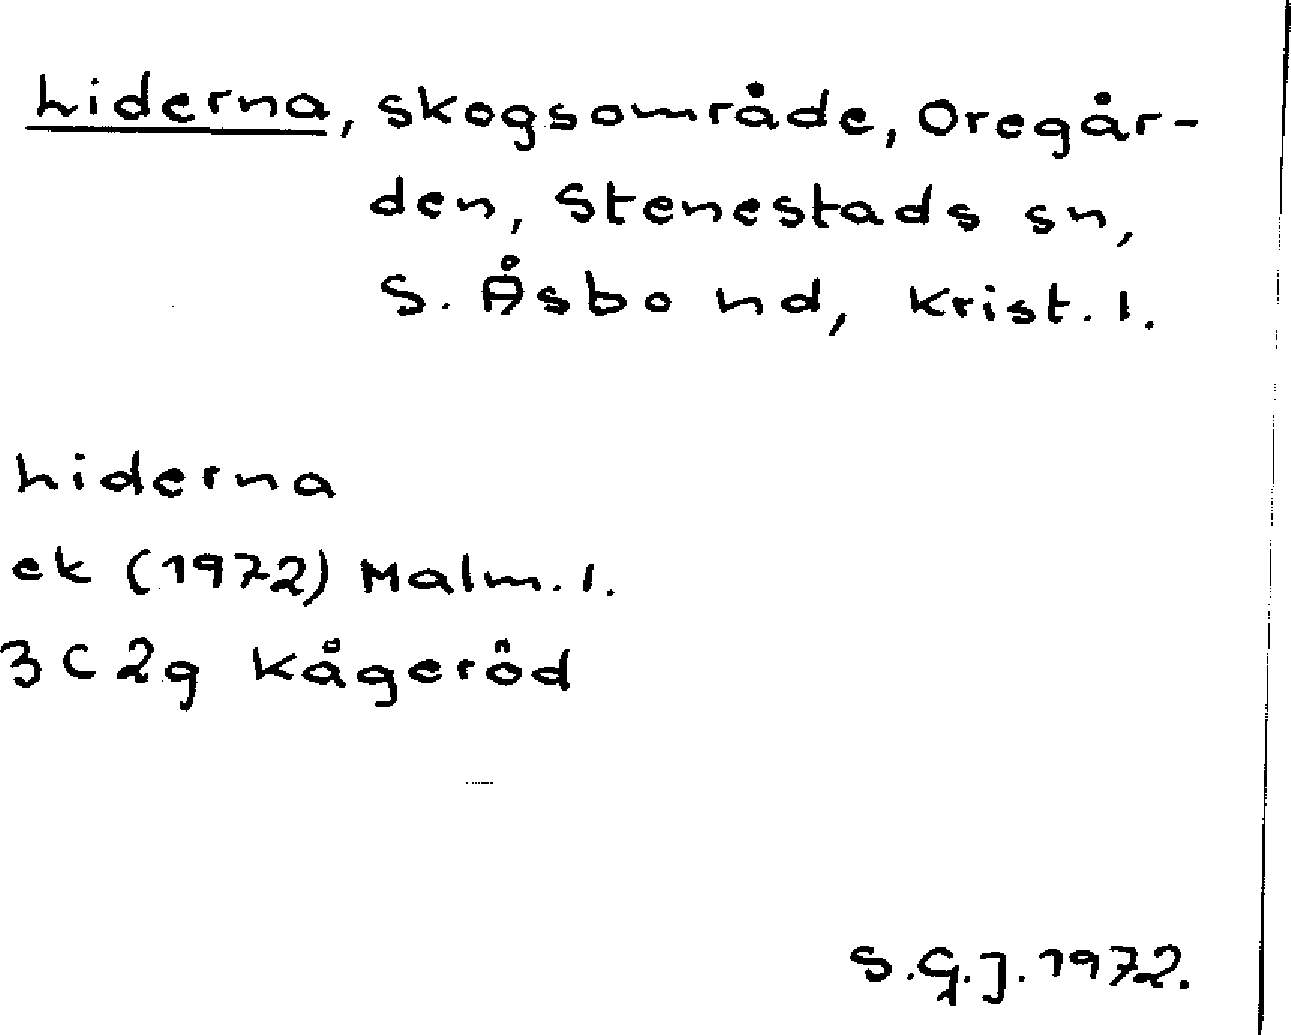 Liderna, skogsområde, Oregår-
den, Stenestads sn,
S. Åsbo hd, Krist. l.
Liderna
ek (1972) Malm. l.
3C2g Kågeröd
S.G.J. 1972.